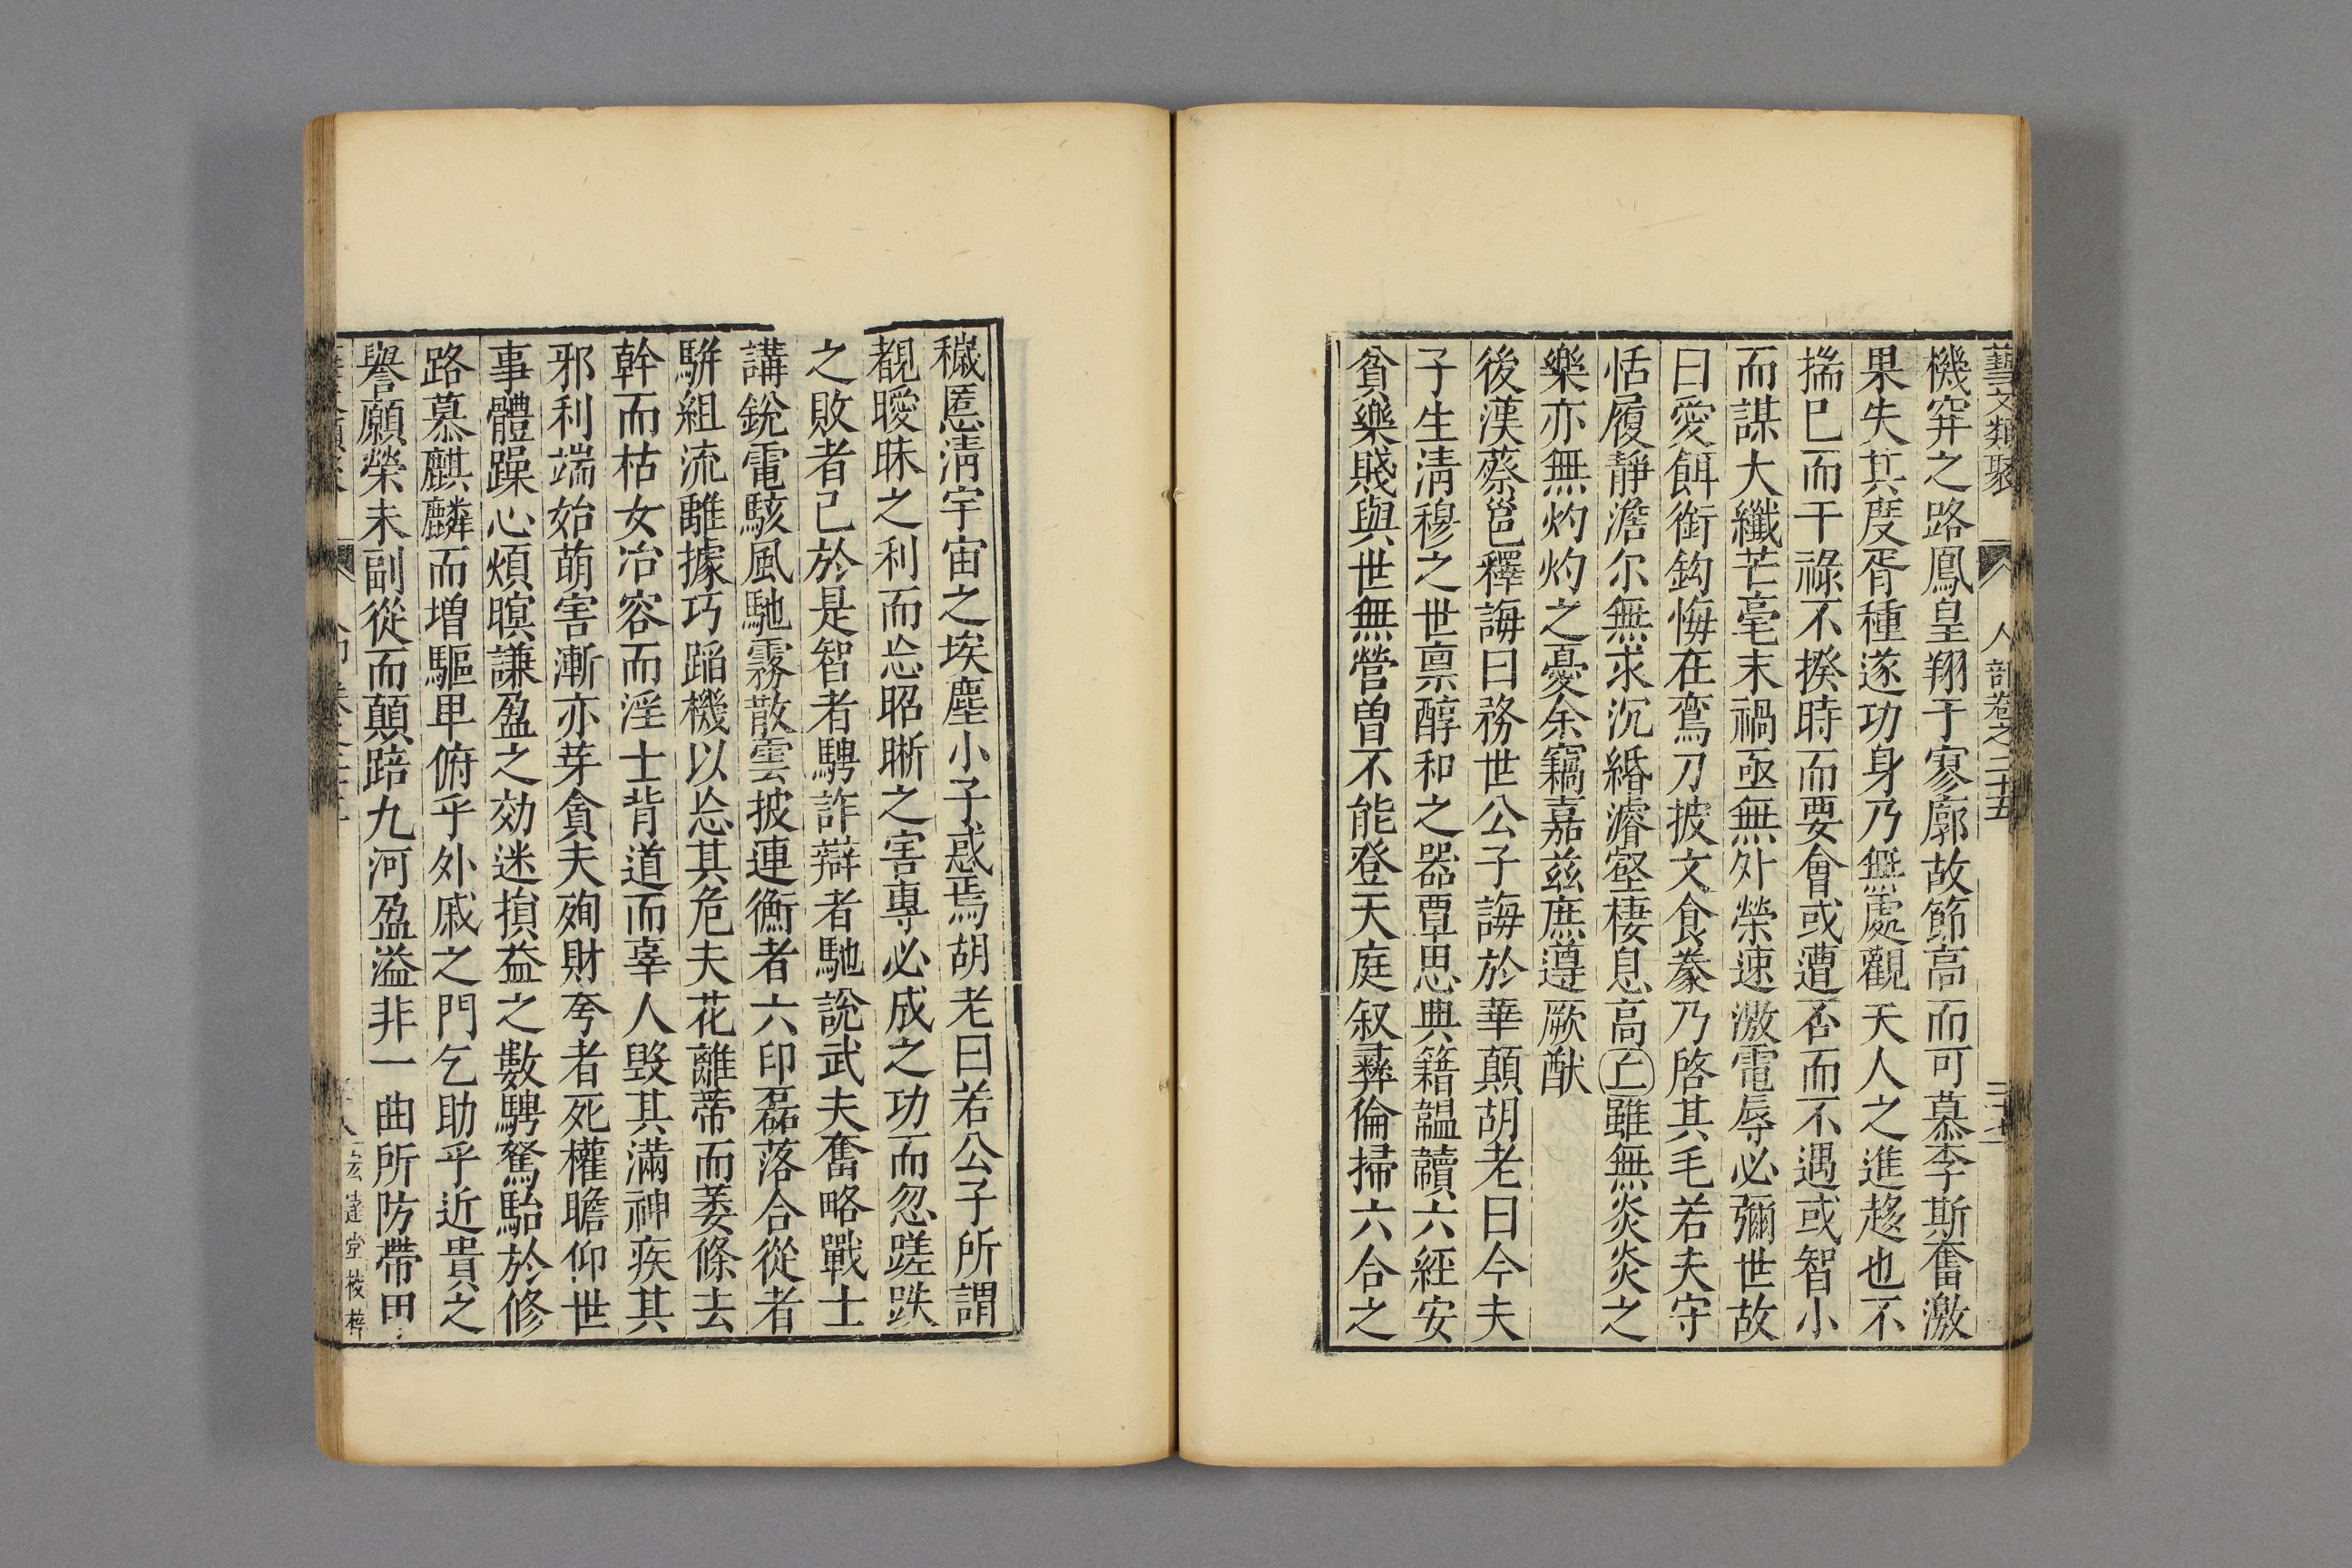 藝文類聚 人部卷之二十五 三十七
機穽之路鳳皇翔于寥廓故節高而可慕李斯奮激
果失其度胥種遂功身乃無處觀天人之進趍也不
揣巳而干祿不揆時而要會或遭否而不遇或智小
而謀大纖芒毫末禍亟無外榮速激電辱必彌世故
曰愛餌銜鈎悔在鸞刀披文食豢乃啓其毛若夫守
恬履靜澹尔無求沉緡濬壑棲息高丘雖無炎炎之
樂亦無灼灼之憂余竊嘉兹庶遵厥猷
後漢蔡邕釋誨曰務世公子誨於華顛胡老曰今夫
子生清穆之世禀醇和之器覃思典籍韞韥六經安
貧樂賤與世無營曽不能登天庭叙彞倫掃六合之
穢慝淸宇宙之埃塵小子惑焉胡老曰若公子所謂
覩曖昧之利而忘昭晰之害專必成之功而忽蹉跌
之敗者已於是智者騁詐辯者馳說武夫奮略戰士
講銳電駭風馳霧散雲披連衡者六印磊落合從者
駢組流離據巧蹈機以忘其危夫花離蒂而萎條去
幹而枯女冶容而淫士背道而辜人毀其滿神疾其
邪利端始萌害漸亦芽貪夫殉財夸者死權瞻仰世
事體躁心煩瞑謙盈之効迷損益之數騁駑駘於修
路慕麒麟而增驅卑俯乎外戚之門乞助乎近貴之
譽願榮未副從而顛踣九河盈溢非一曲所防帶甲